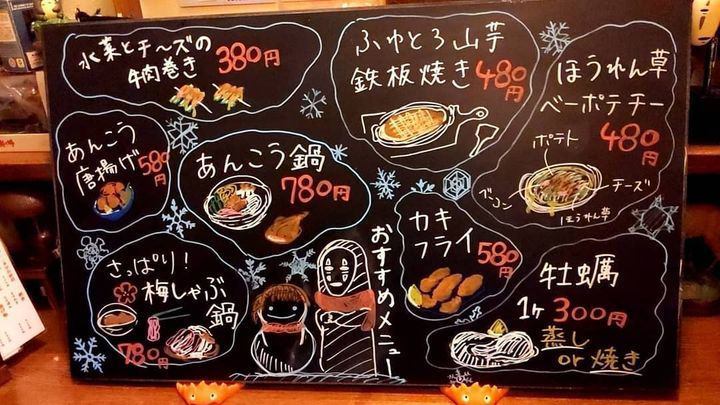 水菜とチーズの
牛肉巻き 380円
ふゆとろ山芋
鉄板焼き 480円
ほうれん草
ベーポテチー
480円
ポテト
ベーコン
チーズ
ほうれん草
あんこう
唐揚げ 580円
あんこう鍋
780円
カキ
フライ 580円
さっぱり!
梅しゃぶ
鍋
780円
おすすめメニュー
牡蠣
1ヶ 300円
蒸し
or 焼き